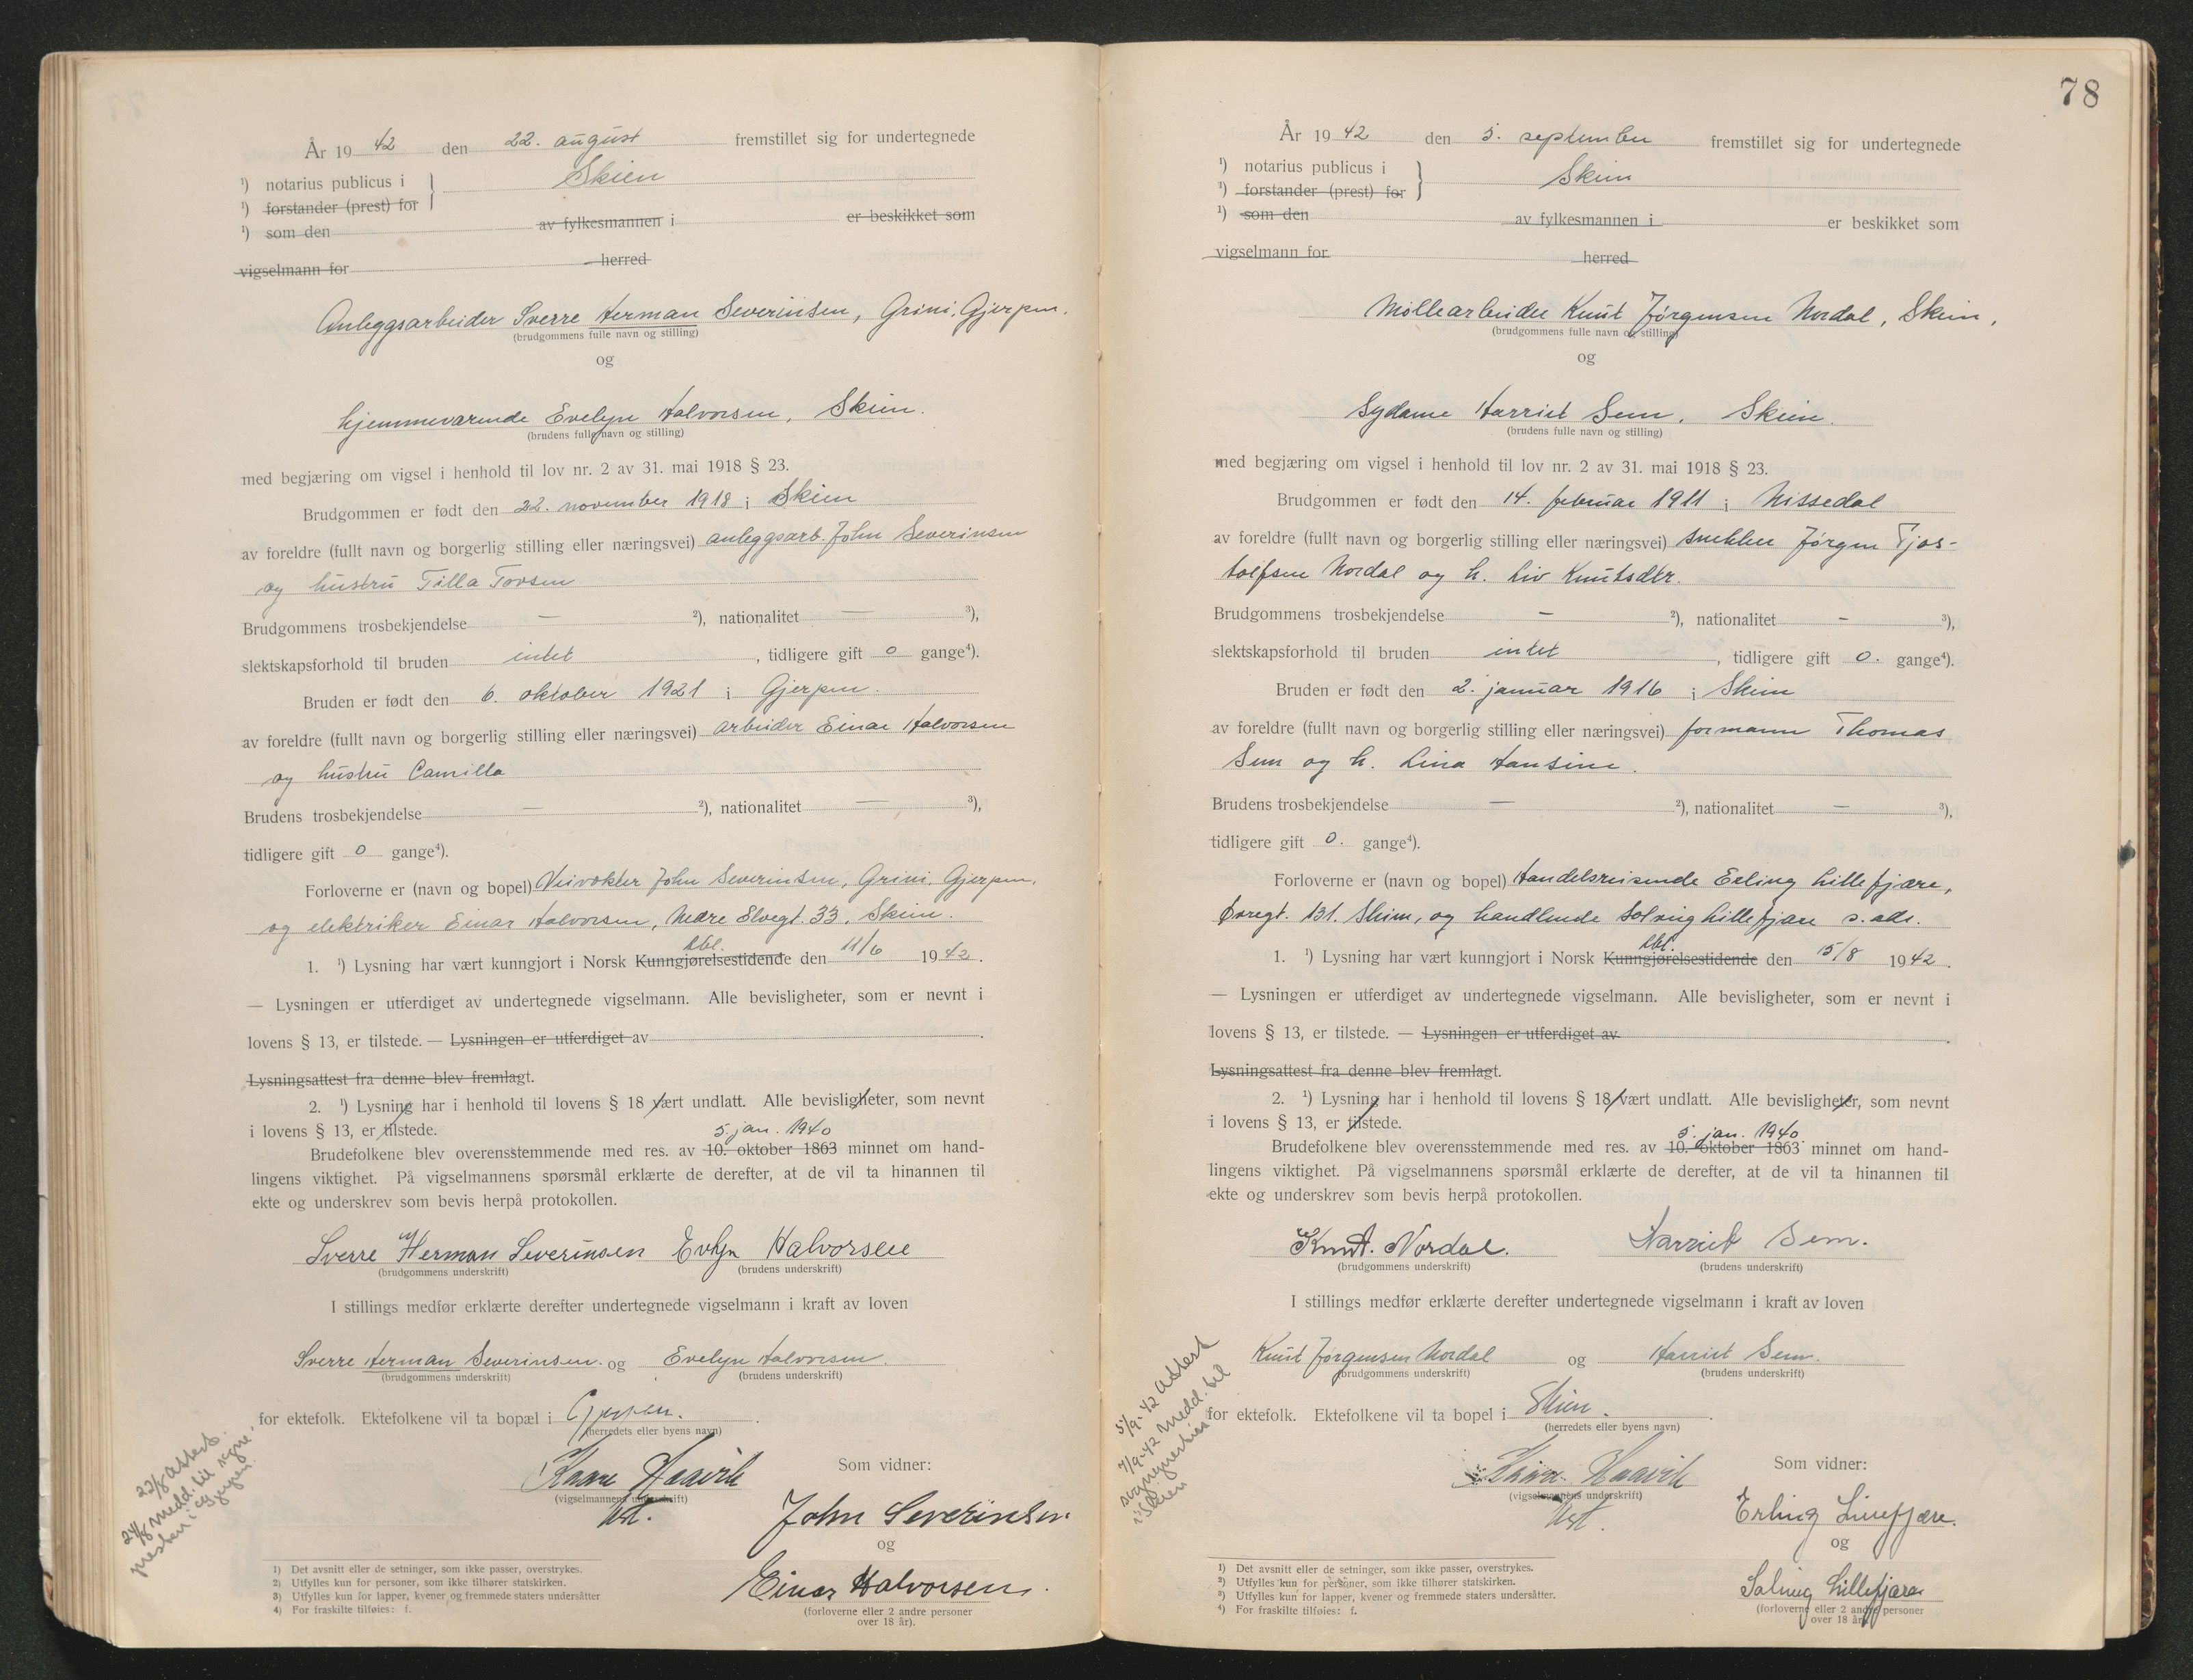 År 19 42 den 22. august fremstillet sig for undertegnede
¹) notarius publicus i Skien
¹) forstander (prest) for
¹) som den av fylkesmannen i er beskikket som
vigselmann for herred
Anleggsarbeider Sverre Herman Severinsen, Grini, Gjerpen.
(brudgommens fulle navn og stilling)
og
hjemmeværende Evelyn Halvorsen, Skien.
(brudens fulle navn og stilling)
med begjæring om vigsel i henhold til lov nr. 2 av 31. mai 1918 § 23.
Brudgommen er født den 22. november 1918 i Skien
av foreldre (fullt navn og borgerlig stilling eller næringsvei) anleggsarb. John Severinsen
og hustru Tilla Tovsen
Brudgommens trosbekjendelse — ²), nationalitet — ³),
slektskapsforhold til bruden intet, tidligere gift 0 gange⁴).
Bruden er født den 6. oktober 1921 i Gjerpen.
av foreldre (fullt navn og borgerlig stilling eller næringsvei) arbeider Einar Halvorsen
og hustru Camilla
Brudens trosbekjendelse — ²), nationalitet — ³),
tidligere gift 0 gange⁴).
Forloverne er (navn og bopel) Veivokter John Severinsen, Grini, Gjerpen,
og elektriker Einar Halvorsen, Nedre Elvegt. 33, Skien.
lbl.
1. ¹) Lysning har vært kunngjort i Norsk Kunngjørelsestidende den 11/6 1942.
— Lysningen er utferdiget av undertegnede vigselmann. Alle bevisligheter, som er nevnt i
lovens § 13, er tilstede. — Lysningen er utferdiget av
Lysningsattest fra denne blev fremlagt.
2. ¹) Lysning har i henhold til lovens § 18 vært undlatt. Alle bevisligheter, som nevnt
i lovens § 13, er tilstede.
5. jan. 1940
Brudefolkene blev overensstemmende med res. av 10. oktober 1863 minnet om hand-
lingens viktighet. På vigselmannens spørsmål erklærte de derefter, at de vil ta hinannen til
ekte og underskrev som bevis herpå protokollen.
Sverre Herman Severinsen Evelyn Halvorsen
(brudgommens underskrift) (brudens underskrift)
I stillings medfør erklærte derefter undertegnede vigselmann i kraft av loven
Sverre Herman Severinsen og Evelyn Halvorsen.
(brudgommens underskrift) (brudens underskrift)
for ektefolk. Ektefolkene vil ta bopæl i Gjerpen.
(herredets eller byens navn)
22/8 attest.
24/8 medd. til sogne-
presten i Gjerpen.
Kaare Haavik Som vidner:
(vigselmannens underskrift)
Ust.
John Severinsen.
og
Einar Halvorsen.
(forloverne eller 2 andre personer
over 18 år).
1) Det avsnitt eller de setninger, som ikke passer, overstrykes.
2) Utfylles kun for personer, som ikke tilhører statskirken.
3) Utfylles kun for lapper, kvener og fremmede staters undersåtter
4) For fraskilte tilføies: f.
78
År 19 42 den 5. september fremstillet sig for undertegnede
¹) notarius publicus i Skien
¹) forstander (prest) for
¹) som den av fylkesmannen i er beskikket som
vigselmann for herred
Møllearbeider Knut Jørgensen Nordal, Skien,
(brudgommens fulle navn og stilling)
og
Sydame Harriet Sem, Skien.
(brudens fulle navn og stilling)
med begjæring om vigsel i henhold til lov nr. 2 av 31. mai 1918 § 23.
Brudgommen er født den 14. februar 1911 i Nissedal
av foreldre (fullt navn og borgerlig stilling eller næringsvei) snekker Jørgen Tjos-
tolfsen Nordal og h. Liv Knutsdtr.
Brudgommens trosbekjendelse - ²), nationalitet - ³),
slektskapsforhold til bruden intet, tidligere gift 0. gange⁴).
Bruden er født den 2. januar 1916 i Skien
av foreldre (fullt navn og borgerlig stilling eller næringsvei) formann Thomas
Sem og h. Lina Hansine.
Brudens trosbekjendelse — ²), nationalitet — ³),
tidligere gift 0. gange⁴).
Forloverne er (navn og bopel) Handelsreisende Erling Lillefjære,
131. Skien, og handlende Solveig Lillefjære s. adr.
lbl.
1. ¹) Lysning har vært kunngjort i Norsk Kunngjørelsestidende den 15/8 1942.
— Lysningen er utferdiget av undertegnede vigselmann. Alle bevisligheter, som er nevnt i
lovens § 13, er tilstede. — Lysningen er utferdiget av
Lysningsattest fra denne blev fremlagt.
2. ¹) Lysning har i henhold til lovens § 18 vært undlatt. Alle bevisligheter, som nevnt
i lovens § 13, er tilstede.
5. jan. 1940.
Brudefolkene blev overensstemmende med res. av 10. oktober 1863 minnet om hand-
lingens viktighet. På vigselmannens spørsmål erklærte de derefter, at de vil ta hinannen til
ekte og underskrev som bevis herpå protokollen.
Knut. Nordal. Harriet Sem.
(brudgommens underskrift) (brudens underskrift)
I stillings medfør erklærte derefter undertegnede vigselmann i kraft av loven
Knut Jørgensen Nordal og Harriet Sem.
(brudgommens underskrift) (brudens underskrift)
for ektefolk. Ektefolkene vil ta bopel i Skien.
(herredets eller byens navn)
5/9-42 attest
7/9-42 medd. til
i Skien
Kaare Haavik Som vidner:
(vigselmannens underskrift)
Ust.
Erling Lillefjære.
og
Solveig Lillefjære
(forloverne eller 2 andre personer
over 18 år).
1) Det avsnitt eller de setninger, som ikke passer, overstrykes.
2) Utfylles kun for personer, som ikke tilhører statskirken.
3) Utfylles kun for lapper, kvener og fremmede staters undersåtter.
4) For fraskilte tilføies: f.